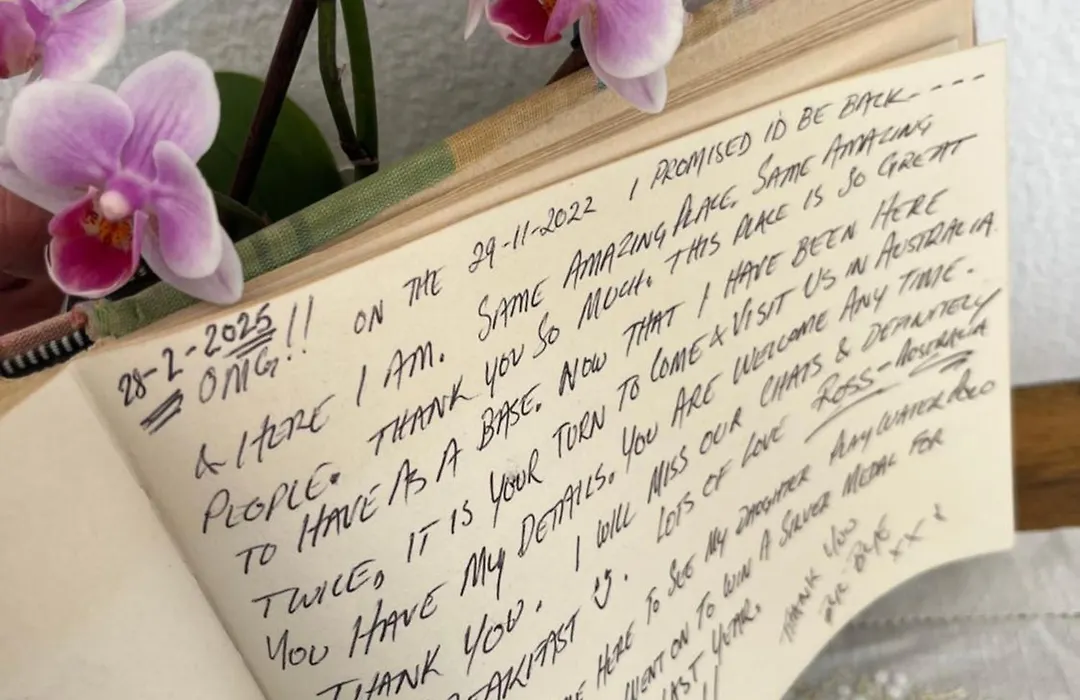 28-2-2025
OMG!! ON THE 29-11-2022 I PROMISED I'D BE BACK----
& HERE I AM. SAME AMAZING PLACE. SAME AMAZING
PEOPLE. THANK YOU SO MUCH. THIS PLACE IS SO GREAT
TO HAVE AS A BASE. NOW THAT I HAVE BEEN HERE
TWICE, IT IS YOUR TURN TO COME & VISIT US IN AUSTRALIA.
YOU HAVE MY DETAILS. YOU ARE WELCOME ANY TIME.
THANK YOU. I WILL MISS OUR CHATS & DEFINITELY
BREAKFAST LOTS OF LOVE ROSS-AUSTRALIA
HERE TO SEE MY DAUGHTER PLAY WATER POLO
WENT ON TO WIN A SILVER MEDAL FOR
LAST YEAR. THANK YOU
!! BYE BYE
xxx